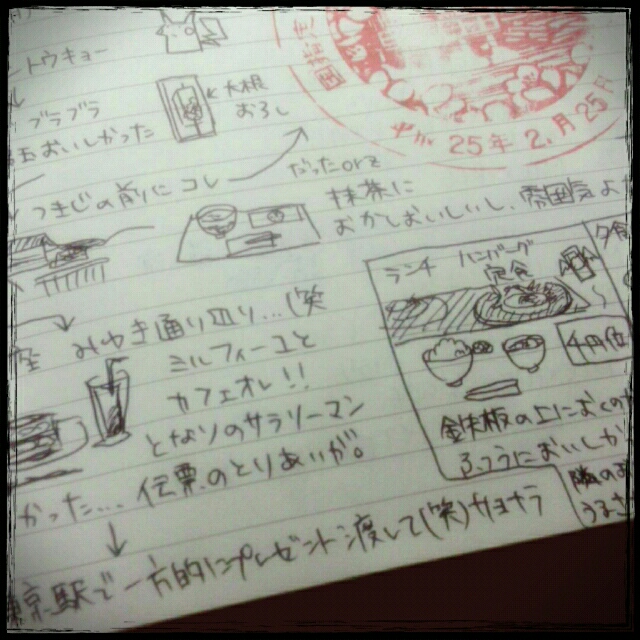 トウキョー
ブラブラ
おいしかった
大根
おろし
25年2月25
だったorz
つきじの前にコレ
抹茶に
おかしおいしいし、雰囲気よ
ランチ ハンバーグ
定食
みゆき通り辺り…(笑
ミルフィーユと
カフェオレ!!
となりのサラリーマン
かった… 伝票のとりあいが。
千円位
鉄板の上におとの
ふつうにおいしか
駅で一方的にプレゼント渡して(笑)サヨナラ
隣の
うるさ